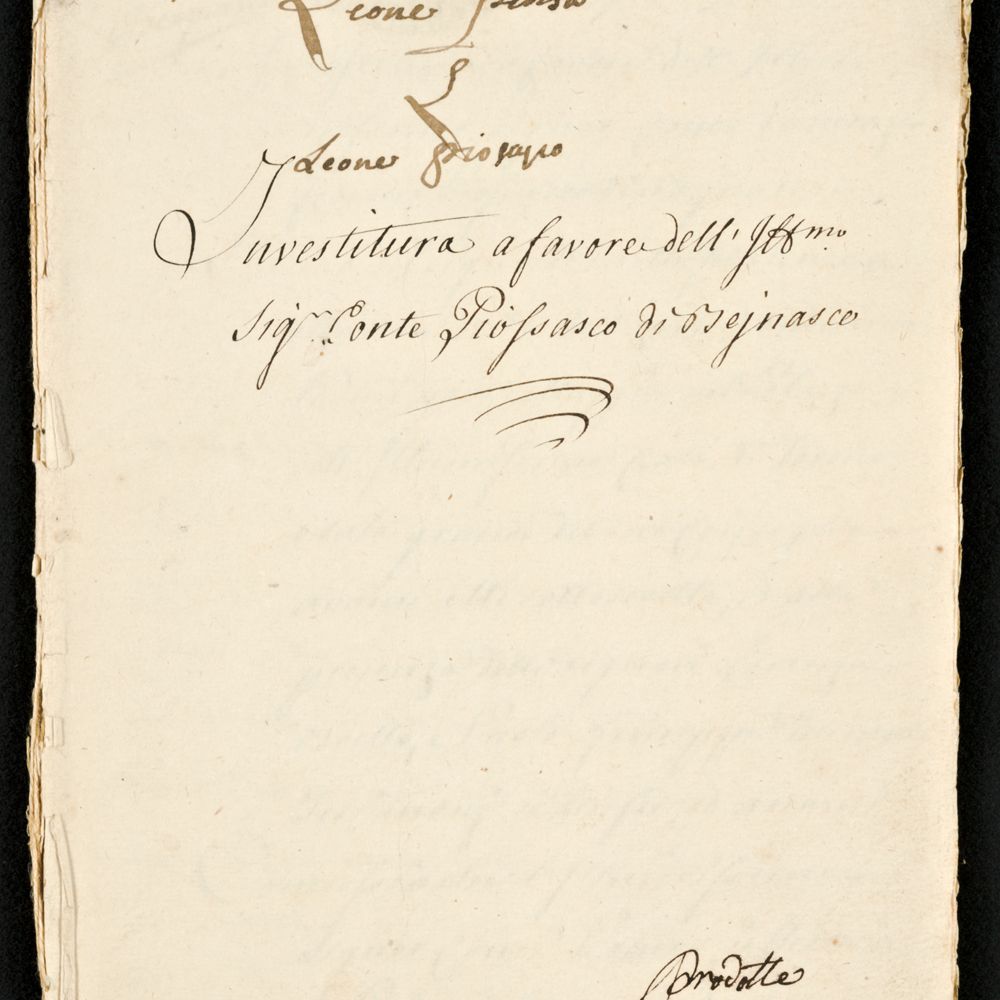 Leone
Leone
Investitura a favore dell' Ill.mo
Sig.r Conte Piossasco di Bejnasco
Prodotte